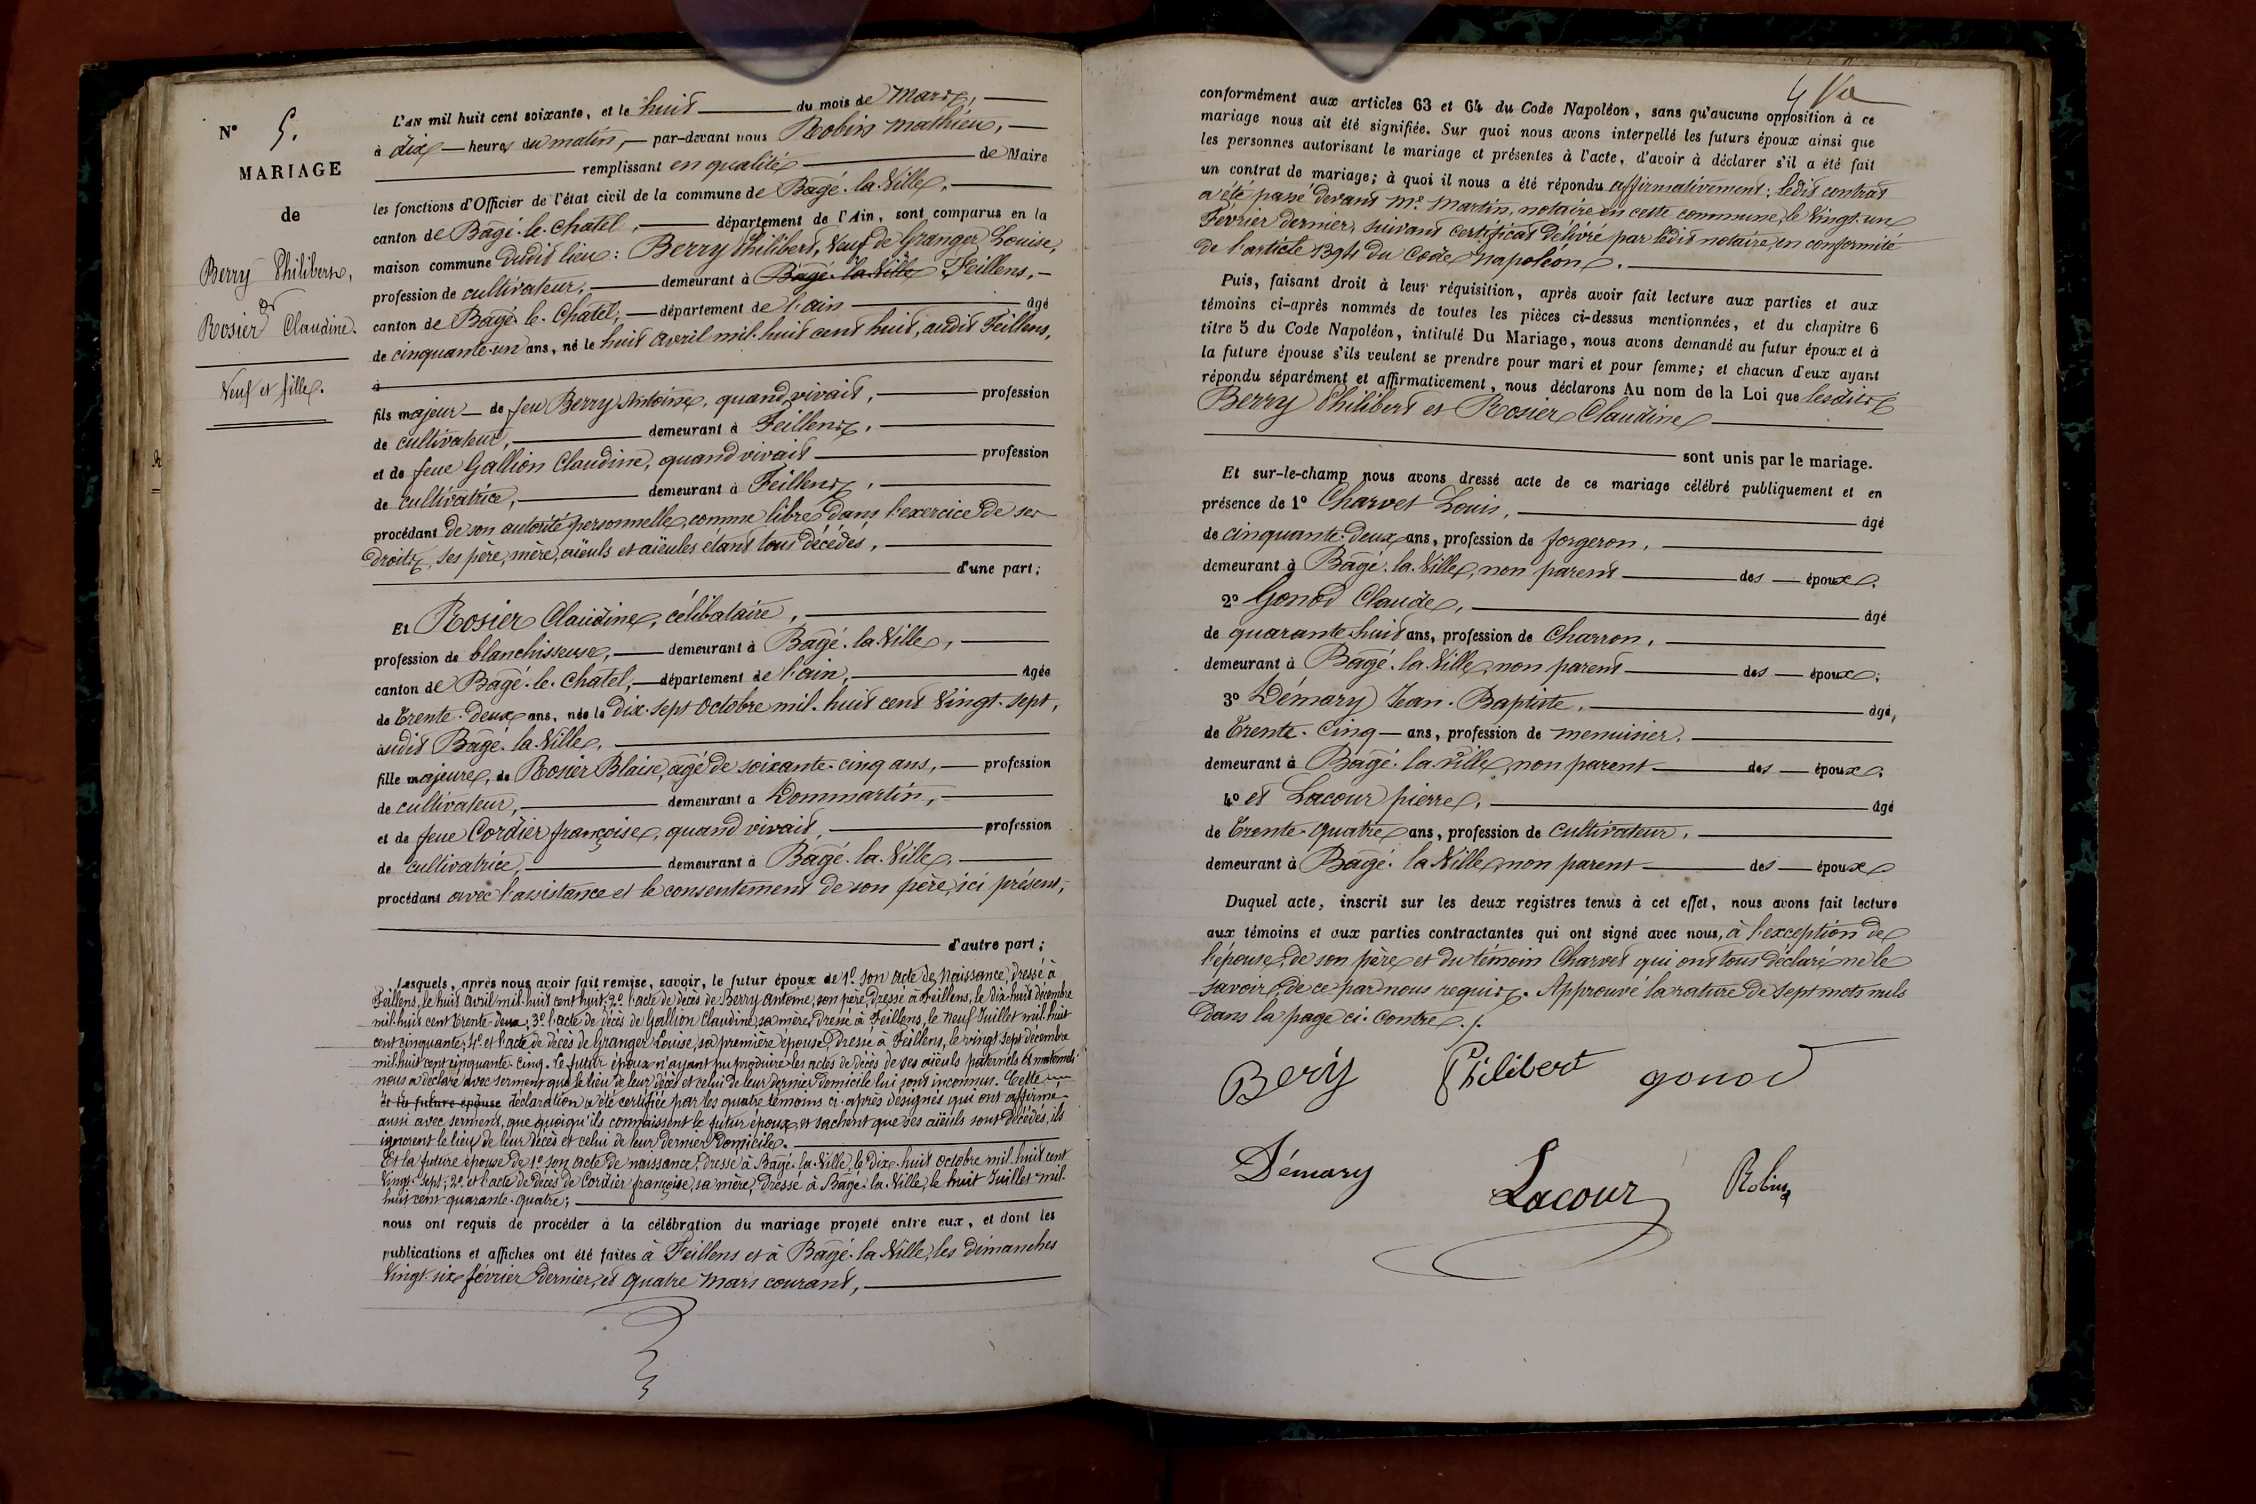 N° 5.
MARIAGE
de
Berry Philibert,
et
Rosier Claudine.
Veuf et fille.
L'AN mil huit cent soixante, et le huit du mois de Mars,
à dix heures du matin, par-devant nous Robin Mathieu,
remplissant en qualité de Maire
les fonctions d'Officier de l'état civil de la commune de Bâgé-la-Ville,
canton de Bâgé-le-Chatel, département de l'Ain, sont comparus en la
maison commune dudit lieu: Berry Philibert, Veuf de Granger Louise,
profession de cultivateur, demeurant à Bâgé-la-Ville Feillens,
canton de Bâgé-le-Chatel, département de l'ain âgé
de cinquante-un ans, né le huit avril mil-huit cent huit, audit Feillens,
à
fils majeur de feu Berry Antoine, quand vivait, profession
de cultivateur, demeurant à Feillens,
et de feue Gallion Claudine, quand vivait profession
de cultivatrice, demeurant à Feillens,
procédant de son autorité personnelle, comme libre dans l'exercice de ses
droits, ses père, mère, aïeuls et aïeules étant tous décédés,
d'une part;
Et Rosier Claudine, célibataire,
profession de blanchisseuse, demeurant à Bâgé-la-Ville,
canton de Bâgé-le-Chatel, département de l'ain, âgée
de trente-deux ans, née le dix-sept octobre mil-huit cent vingt-sept,
audit Bâgé-la-Ville,
fille majeure, de Rosier Blaise, âgé de soixante-cinq ans, profession
de cultivateur, demeurant à Dommartin,
et de feue Cordier françoise, quand vivait, profession
de cultivatrice, demeurant à Bâgé-la-Ville,
procédant avec l'assistance et le consentement de son père, ici présent,
d'autre part;
Lesquels, après nous avoir fait remise, savoir, le futur époux de 1° son acte de Naissance, dressé à
Feillens, le huit avril mil-huit cent huit; 2° l'acte de décès de Berry Antoine, son père, dressé à Feillens, le dix-huit décembre
mil-huit cent trente-deux; 3° l'acte de décès de Gallion Claudine, sa mère, dressé à Feillens, le neuf Juillet mil-huit
cent cinquante; 4° et l'acte de décès de Granger Louise, sa première épouse, dressé à Feillens, le vingt-sept décembre
mil-huit cent cinquante-cinq. Le futur époux n'ayant pu produire les actes de décès de ses aïeuls paternels et maternels
nous a déclaré avec serment que le lieu de leur décès et celui de leur dernier domicile lui sont inconnus. Cette
et la future épouse déclaration a été certifiée par les quatre témoins ci-après désignés qui ont affirmé
aussi avec serment, que quoiqu'ils connaissent le futur époux et sachent que ses aïeuls sont décédés, ils
ignorent le lieu de leur décès et celui de leur dernier domicile.
Et la future épouse de 1° son acte de naissance, dressé à Bâgé-la-Ville, le dix-huit octobre mil-huit cent
vingt-sept; 2° et l'acte de décès de Cordier françoise, sa mère, dressé à Bâgé-la-Ville, le huit Juillet mil-
huit cent quarante-quatre;
nous ont requis de procéder à la célébration du mariage projeté entre eux, et dont les
publications et affiches ont été faites à Feillens et à Bâgé-la-Ville, les dimanches
vingt-six février dernier, et quatre mars courant,
conformément aux articles 63 et 64 du Code Napoléon, sans qu'aucune opposition à ce
mariage nous ait été signifiée. Sur quoi nous avons interpellé les futurs époux ainsi que
les personnes autorisant le mariage et présentes à l'acte, d'avoir à déclarer s'il a été fait
un contrat de mariage; à quoi il nous a été répondu affirmativement: ledit contrat
a été passé devant Me Martin, notaire en cette commune, le vingt-un
Février dernier, suivant certificat délivré par ledit notaire en conformité
de l'article 1394 du Code Napoléon.
Puis, faisant droit à leur réquisition, après avoir fait lecture aux parties et aux
témoins ci-après nommés de toutes les pièces ci-dessus mentionnées, et du chapitre 6
titre 5 du Code Napoléon, intitulé Du Mariage, nous avons demandé au futur époux et à
la future épouse s'ils veulent se prendre pour mari et pour femme; et chacun d'eux ayant
répondu séparément et affirmativement, nous déclarons Au nom de la Loi que lesdits
Berry Philibert et Rosier Claudine
sont unis par le mariage.
Et sur-le-champ nous avons dressé acte de ce mariage célébré publiquement et en
présence de 1° Charvet Louis, âgé
de cinquante-deux ans, profession de forgeron,
demeurant à Bâgé-la-Ville, non parent des époux.
2° Gonod Claude, âgé
de quarante-huit ans, profession de Charron,
demeurant à Bâgé-la-Ville, non parent des époux;
3° Démary Jean-Baptiste, âgé,
de trente-cinq ans, profession de menuisier,
demeurant à Bâgé-la-Ville, non parent des époux.
4° et Lacour pierre, âgé
de trente-quatre ans, profession de cultivateur,
demeurant à Bâgé-la-Ville, non parent des époux
Duquel acte, inscrit sur les deux registres tenus à cet effet, nous avons fait lecture
aux témoins et aux parties contractantes qui ont signé avec nous, à l'exception de
l'épouse, de son père et du témoin Charvet qui ont tous déclaré ne le
savoir, de ce par nous requis. Approuvé la rature de sept mots nuls
dans la page ci-contre.
Berÿ Philibert gonod
Démary Lacour Robin